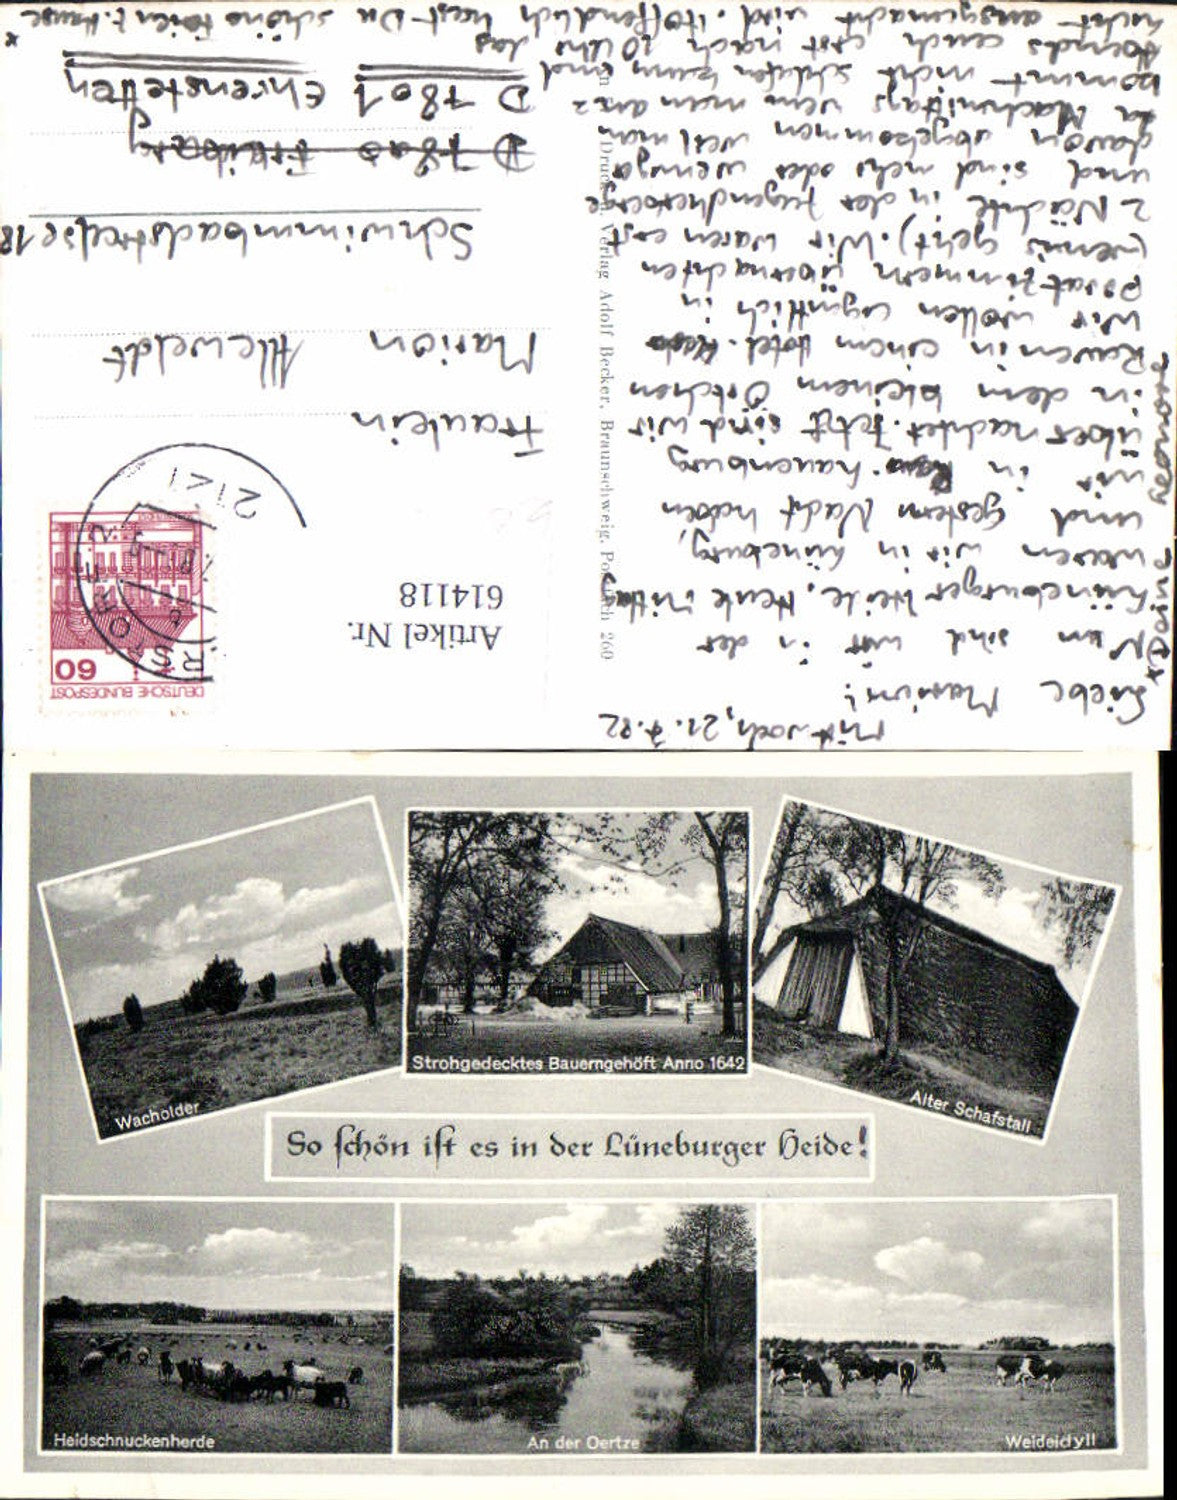 Mittwoch, 21.7.82
Liebe Marion!
Nun sind wir in der
Lüneburger Heide. Heute Mittag
waren wir in Lüneburg,
und gestern Nacht haben
wir in Lauenburg
übernachtet. Jetzt sind wir
in dem kleinen Örtchen
Raven in einem Hotel.
Wir wollen eigentlich in
Privatzimmern übernachten
(wenns geht). Wir waren erst
2 Nächte in der Jugendherberge
und sind mehr oder weniger
davon abgekommen weil man
da Nachmittags wenn man an
kommt nicht schlafen kann und
Abends auch erst nach 10 Uhr das
Licht ausgemacht wird. Hoffendlich hast Du schöne Ferien z. Hause
Deine
Fräulein
Marion Alleweldt
Schwimmbadstraße 18
D 7800 Freiburg
D 7801 Ehrenstetten
DEUTSCHE BUNDESPOST
60
21.7.
Artikel Nr.
614118
Verlag Adolf Becker, Braunschweig, Postfach 260
Wacholder
Strohgedecktes Bauerngehöft Anno 1642
Alter Schafstall
So schön ist es in der Lüneburger Heide!
Heidschnuckenherde
An der Oertze
Weideidyll